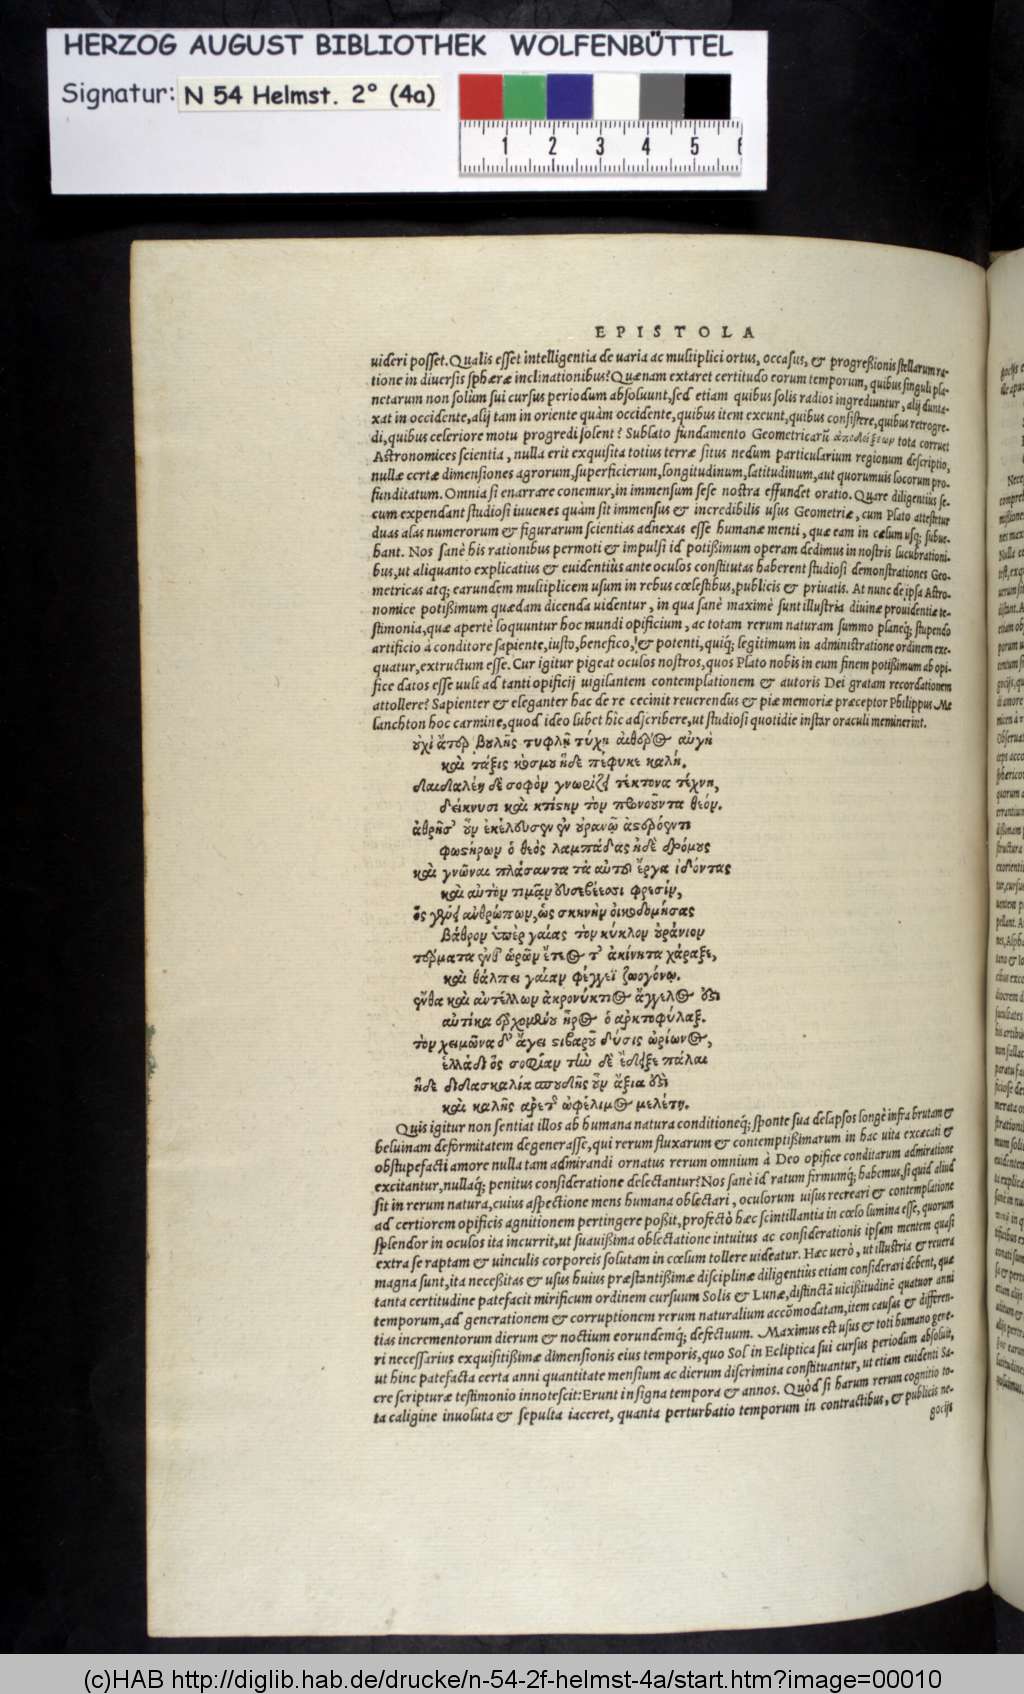 HERZOG AUGUST BIBLIOTHEK WOLFENBÜTTEL
Signatur: N 54 Helmst. 2° (4a)
1 2 3 4 5 6
EPISTOLA
uideri posset. Qualis esset intelligentia de uaria ac multiplici ortus, occasus, & progreßionis stellarum ra-
tione in diuersis sphæræ inclinationibus? Quænam extaret certitudo eorum temporum, quibus singuli pla-
netarum non solùm sui cursus periodum absoluunt, sed etiam quibus solis radios ingrediuntur, alij dunta-
xat in occidente, alij tam in oriente quàm occidente, quibus item exeunt, quibus consistere, quibus retrogre-
di, quibus celeriore motu progredi solent? Sublato fundamento Geometricarū ἀποδείξεων tota corruet
Astronomices scientia, nulla erit exquisita totius terræ situs nedum particularium regionum descriptio,
nullæ certæ dimensiones agrorum, superficierum, longitudinum, latitudinum, aut quorumuis locorum pro-
funditatum. Omnia si enarrare conemur, in immensum sese nostra effundet oratio. Quare diligentiùs se-
cum expendant studiosi iuuenes quàm sit immensus & incredibilis usus Geometriæ, cum Plato attestetur
duas alas numerorum & figurarum scientias adnexas esse humanæ menti, quæ eam in cælum usq; subue-
hant. Nos sanè his rationibus permoti & impulsi id potißimum operam dedimus in nostris lucubrationi-
bus, ut aliquanto explicatius & euidentiùs ante oculos constitutas haberent studiosi demonstrationes Geo-
metricas atq; earundem multiplicem usum in rebus cœlestibus, publicis & priuatis. At nunc de ipsa Astro-
nomice potißimum quædam dicenda uidentur, in qua sanè maximè sunt illustria diuinæ prouidentiæ te-
stimonia, quæ apertè loquuntur hoc mundi opificium, ac totam rerum naturam summo planeq; stupendo
artificio à conditore sapiente, iusto, benefico, & potenti, quiq; legitimum in administratione ordinem exe-
quatur, extructum esse. Cur igitur pigeat oculos nostros, quos Plato nobis in eum finem potißimum ab opi-
fice datos esse uult ad tanti opificij uigilantem contemplationem & autoris Dei gratam recordationem
attollere? Sapienter & eleganter hac de re cecinit reuerendus & piæ memoriæ præceptor Philippus Me
lanchton hoc carmine, quod ideo lubet hic adscribere, ut studiosi quotidie instar oraculi meminerint.
οὐχὶ ἄτερ βουλῆς τυφλῇ τύχῃ αἰθέρος αὐγὴ
καὶ τάξις κόσμου ἥδε πέφυκε καλή.
δαιδαλέῃ δὲ σοφὸν γνωρίζει τέκτονα τέχνῃ,
δείκνυσι καὶ κτίστην τὸν προνοοῦντα θεόν.
ἀθρῆσ' οὖν ἐκέλευσεν ἐν οὐρανῷ ἀστρόεντι
φωστήρων ὁ θεὸς λαμπάδας ἠδὲ δρόμους
καὶ γνῶναι πλάσαντα τὰ αὐτοῦ ἔργα ἰδόντας
καὶ αὐτὸν τιμᾷν εὐσεβέεσσι φρεσίν,
ὃς χάριν ἀνθρώπων, ὡς σκηνὴν οἰκοδομήσας
βάθρον ὑπὲρ γαίας τὸν κύκλον οὐράνιον
τέρματα ἐνθ' ὡρῶν ἔτεος τ' ἀκίνητα χάραξε,
καὶ θάλπει γαίαν φέγγεϊ ζωογόνῳ.
ἔνθα καὶ ἀντέλλων ἀκρονύκτιος ἄγγελος ἐστὶ
αὐτίκα ἐρχομένου ἦρος ὁ ἀρκτοφύλαξ.
τὸν χειμῶνα δ' ἄγει στιβαροῦ δύσις ὠρίωνος,
ἑλλάδι ὃς σοφίαν τὼ δὲ ἔδειξε πάλαι
ἥδε διδασκαλία σπουδῆς οὖν ἄξια ἐστὶ
καὶ καλῆς ἀρετῆς ὠφέλιμος μελέτη.
Quis igitur non sentiat illos ab humana natura conditioneq; sponte sua delapsos longè infra brutam &
beluinam deformitatem degenerasse, qui rerum fluxarum & contemptißimarum in hac uita excæcati &
obstupefacti amore nulla tam admirandi ornatus rerum omnium à Deo opifice conditarum admiratione
excitantur, nullaq; penitus consideratione delectantur? Nos sanè id ratum firmumq; habemus, si quid aliud
sit in rerum natura, cuius aspectione mens humana oblectari, oculorum uisus recreari & contemplatione
ad certiorem opificis agnitionem pertingere poßit, profectò hæc scintillantia in cœlo lumina esse, quorum
splendor in oculos ita incurrit, ut suauißima oblectatione intuitus ac considerationis ipsam mentem quasi
extra se raptam & uinculis corporeis solutam in cœlum tollere uideatur. Hæc uerò, ut illustria & reuera
magna sunt, ita neceßitas & usus huius præstantißimæ disciplinæ diligentiùs etiam considerari debent, quæ
tanta certitudine patefacit mirificum ordinem cursuum Solis & Lunæ, distinctā uicißitudinē quatuor anni
temporum, ad generationem & corruptionem rerum naturalium accōmodatam, item causas & differen-
tias incrementorum dierum & noctium eorundemq; defectuum. Maximus est usus & toti humano gene-
ri necessarius exquisitißimæ dimensionis eius temporis, quo Sol in Ecliptica sui cursus periodum absoluit,
ut hinc patefacta certa anni quantitate mensium ac dierum discrimina constituantur, ut etiam euidenti Sa-
cræ scripturæ testimonio innotescit: Erunt in signa tempora & annos. Quòd si harum rerum cognitio to-
ta caligine inuoluta & sepulta iaceret, quanta perturbatio temporum in contractibus, & publicis ne-
gocijs
(c)HAB http://diglib.hab.de/drucke/n-54-2f-helmst-4a/start.htm?image=00010